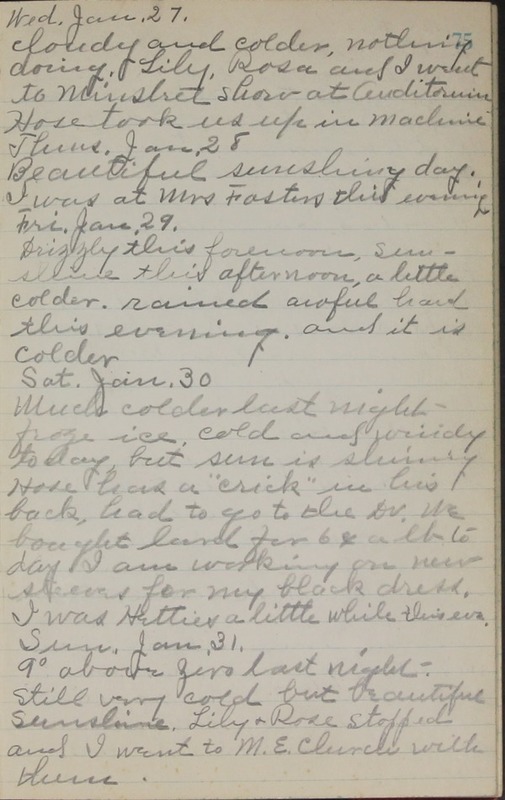 Wed. Jan. 27.
75
cloudy and colder, nothing
doing. Lily, Rosa and I went
to Minstrel Show at Auditorium
Hose took us up in machine
Thurs. Jan. 28
Beautiful sunshiny day.
I was at Mrs Fosters this evening
Fri. Jan. 29.
Drizzly this forenoon, sun-
shine this afternoon, a little
colder. rained awful hard
this evening. and it is
colder
Sat. Jan. 30
Much colder last night-
froze ice, cold and windy
today, but sun is shining
Hose has a "crick" in his
back, had to go to the Dr. We
bought lard for 6¢ a lb to
day I am working on new
sleeves for my black dress.
I was Hetties a little while this eve.
Sun. Jan. 31.
9° above zero last night-
Still very cold but beautiful
Sunshine. Lily + Rose stopped
and I went to M.E. Church with
them.